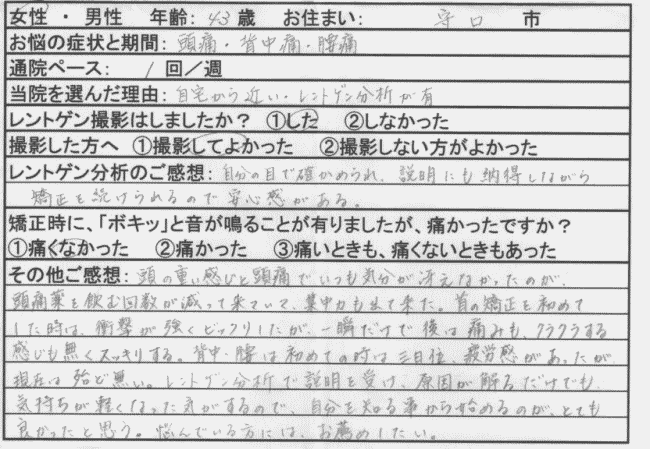 女性 ・ 男性 年齢: 43 歳 お住まい: 守口 市
お悩の症状と期間: 頭痛・背中痛・腰痛
通院ペース: 1 回／週
当院を選んだ理由: 自宅から近い・レントゲン分析が有
レントゲン撮影はしましたか？ ①した ②しなかった
撮影した方へ ①撮影してよかった ②撮影しない方がよかった
レントゲン分析のご感想: 自分の目で確かめられ、説明にも納得しながら
矯正を続けられるので安心感がある。
矯正時に、「ボキッ」と音が鳴ることが有りましたが、痛かったですか？
①痛くなかった ②痛かった ③痛いときも、痛くないときもあった
その他ご感想: 頭の重い感じと頭痛でいつも気分が冴えなかったのが、
頭痛薬を飲む回数が減って来ていて、集中力も出て来た。首の矯正を初めて
した時は、衝撃が強くビックリしたが、一瞬だけで後は痛みも、クラクラする
感じも無くスッキリする。背中・腰は初めての時は三日位、疲労感があったが
現在は殆ど無い。レントゲン分析で説明を受け、原因が解るだけでも、
気持ちが軽くなった気がするので、自分を知る事から始めるのが、とても
良かったと思う。悩んでいる方には、お薦めしたい。